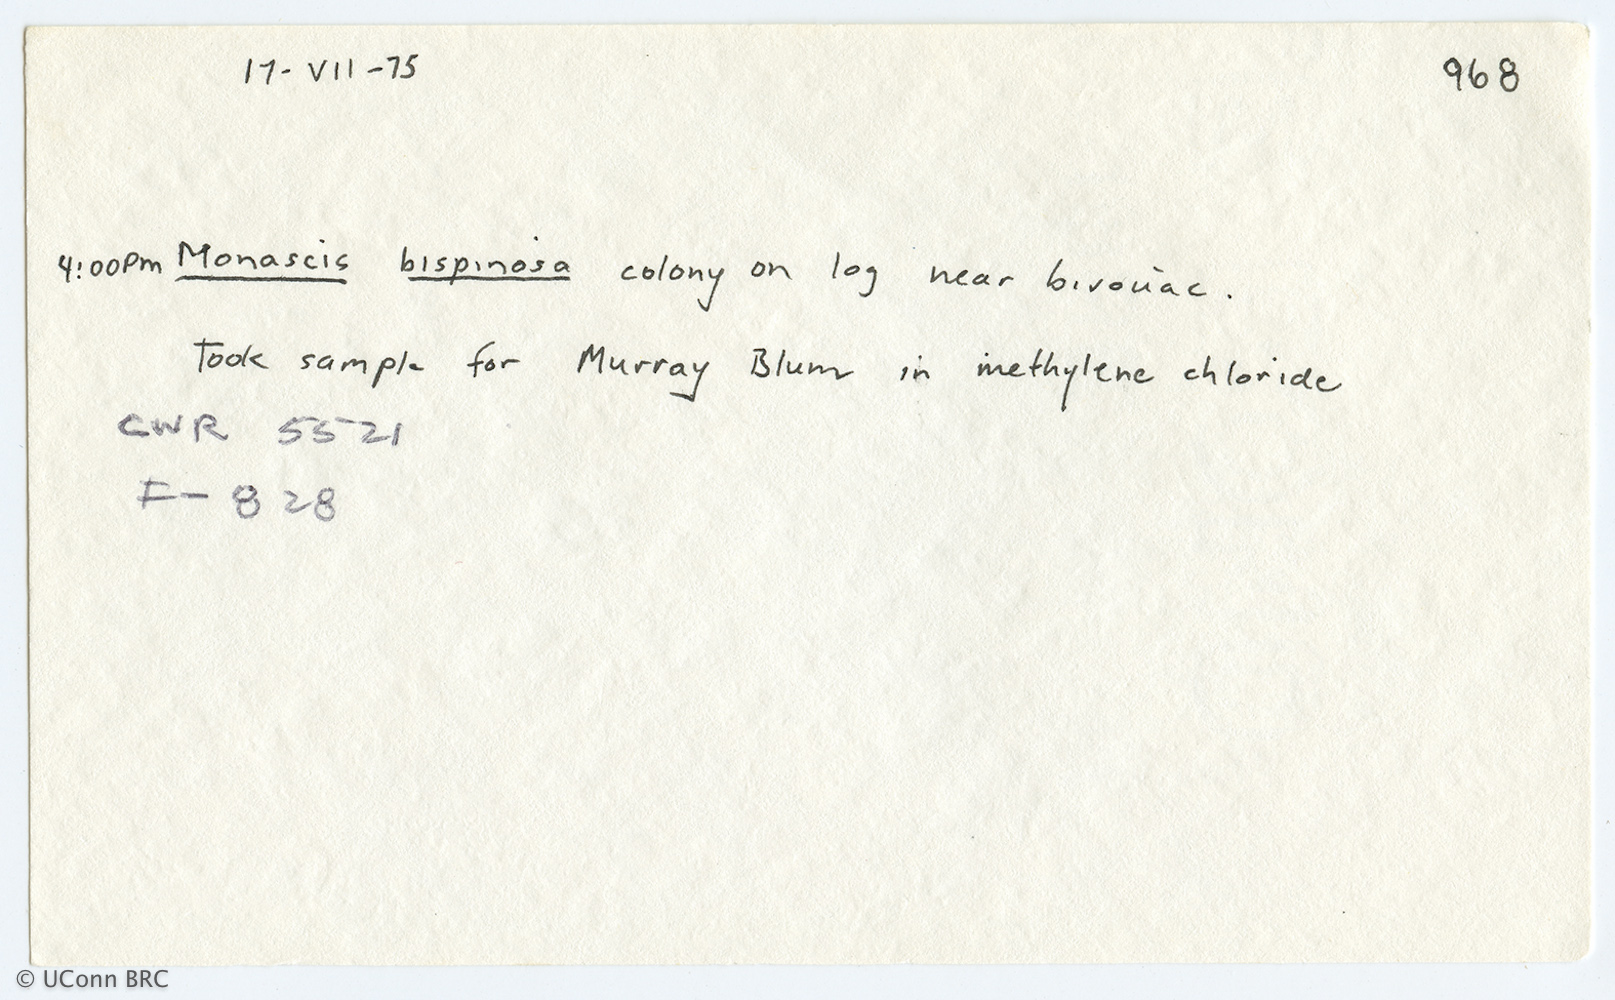 17-VII-75 968
4:00Pm Monascis bispinosa colony on log near bivouac.
Took sample for Murray Blum in methylene chloride
CWR 5521
F-828
© UConn BRC